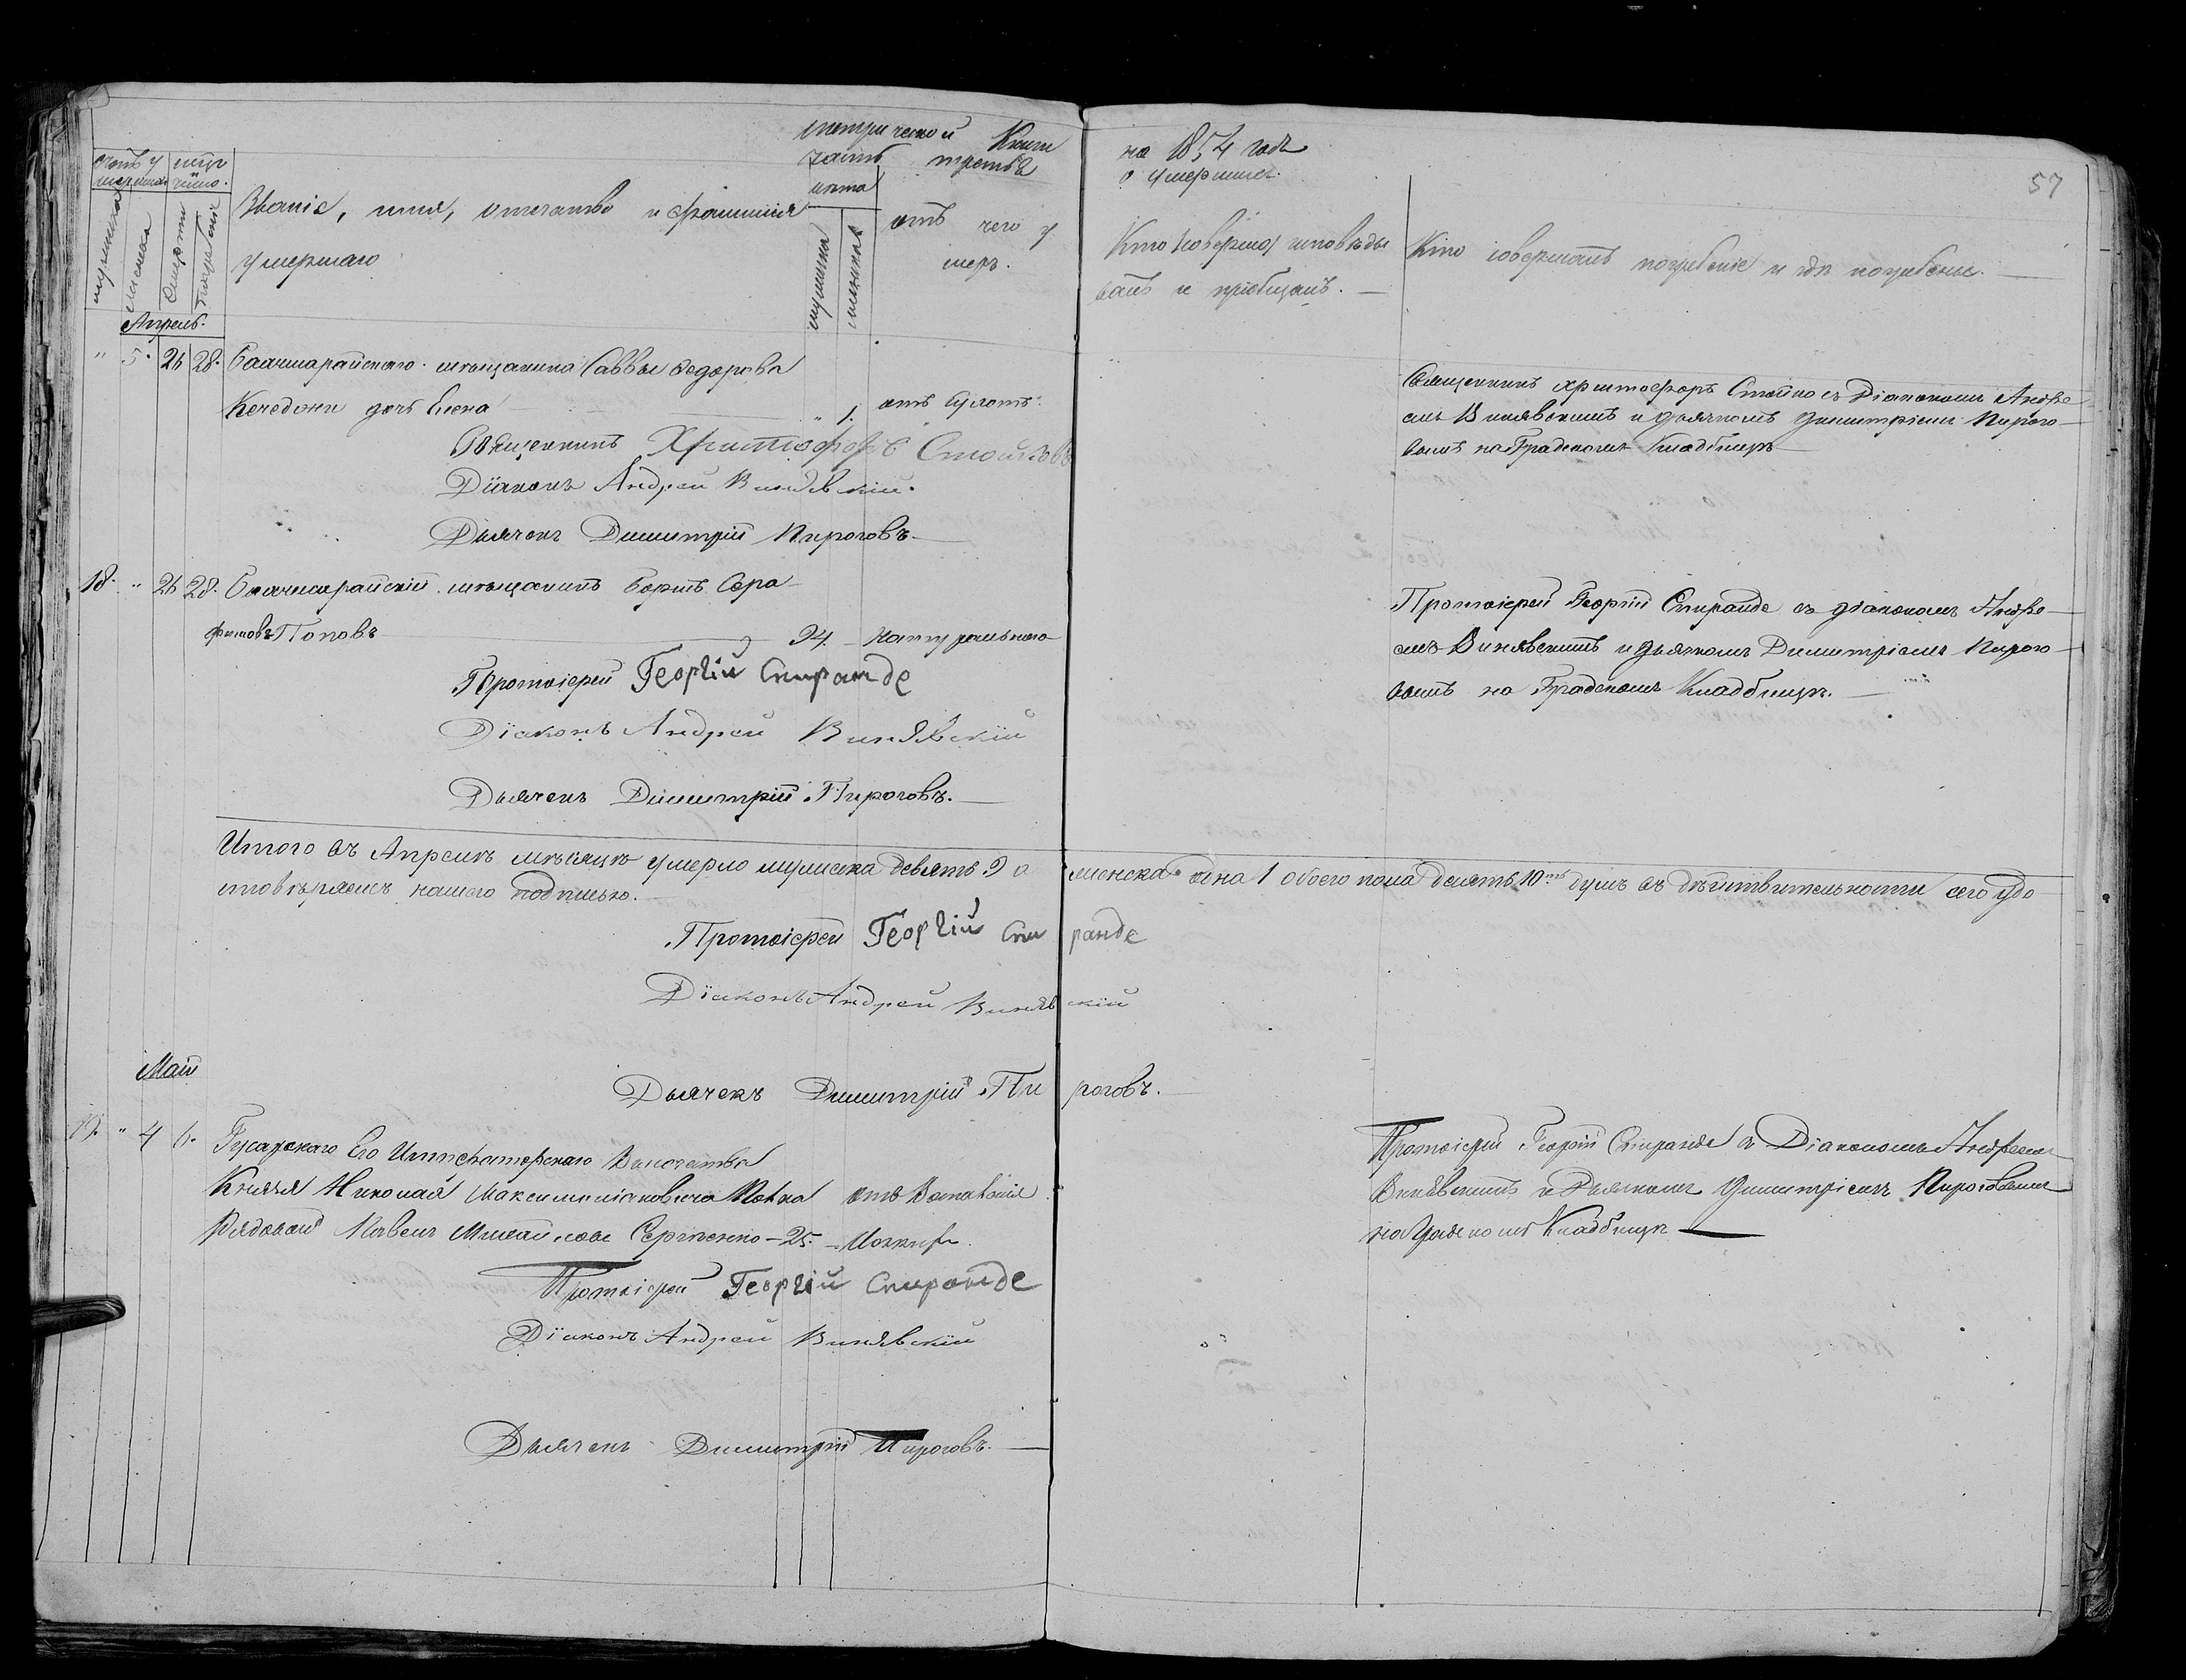 метрической Книги
часть третья
на 1854 годъ
о умершихъ.
57
счетъ у
мершихъ
мужеска
женска
мсцъ
и
число.
смерти
погребенія
Званіе, имя, отчество и фамилія
умершаго
лѣта
мужеска
женска
отъ чего у
меръ.
Кто исповѣды
валъ и пріобщалъ. —
Кто совершалъ погребеніе и гдѣ погребены. —
Апрель.
" 5. 26 28. Бахчисарайскаго мѣщанина Саввы Ѳедорова
дочь Елена " 1.
Священникъ Христофоръ Стойковъ
Діаконъ Андрей Винявскій.
Дьячекъ Димитрій Пироговъ. —
Священникъ Христофоръ Стойко съ Діакономъ Андре
емъ Винявскимъ и дьячкомъ Димитріемъ Пирого
вымъ на Градскомъ Кладбищѣ —
18. " 26 28. Бахчисарайскій мѣщанинъ Сера
фимовъ Поповъ — 94. — натуральной
Протоіерей Георгій Спиранде
Діаконъ Андрей Винявскій
Дьячекъ Димитрій Пироговъ. —
Протоіерей Георгій Спиранде съ діакономъ Андре
емъ Винявскимъ и дьячкомъ Димитріемъ Пирого
вымъ на Градскомъ Кладбищѣ. —
Итого въ Апрелѣ мѣсяцѣ умерло мужеска девять 9 а женска одна 1 обоего пола десять 10ть душъ въ дѣйствительности сего удо
стовѣряемъ нашею подписью. —
Протоіерей Георгій Спиранде
Діаконъ Андрей Винявскій
Дьячекъ Димитрій Пироговъ. —
Май
19. " 4 6. Гусарскаго Его Императорскаго Высочества
Князя Николая Максимиліановича Полка
Рядовой Павелъ Михайловъ Сергіенко — 25.
Протоіерей Георгій Спиранде
Діаконъ Андрей Винявскій
Дьячекъ Димитрій Пироговъ. —
Протоіерей Георгій Спиранде съ Діакономъ Андреемъ
Винявскимъ и Дьячкомъ Димитріемъ Пироговымъ
на Градскомъ Кладбищѣ —